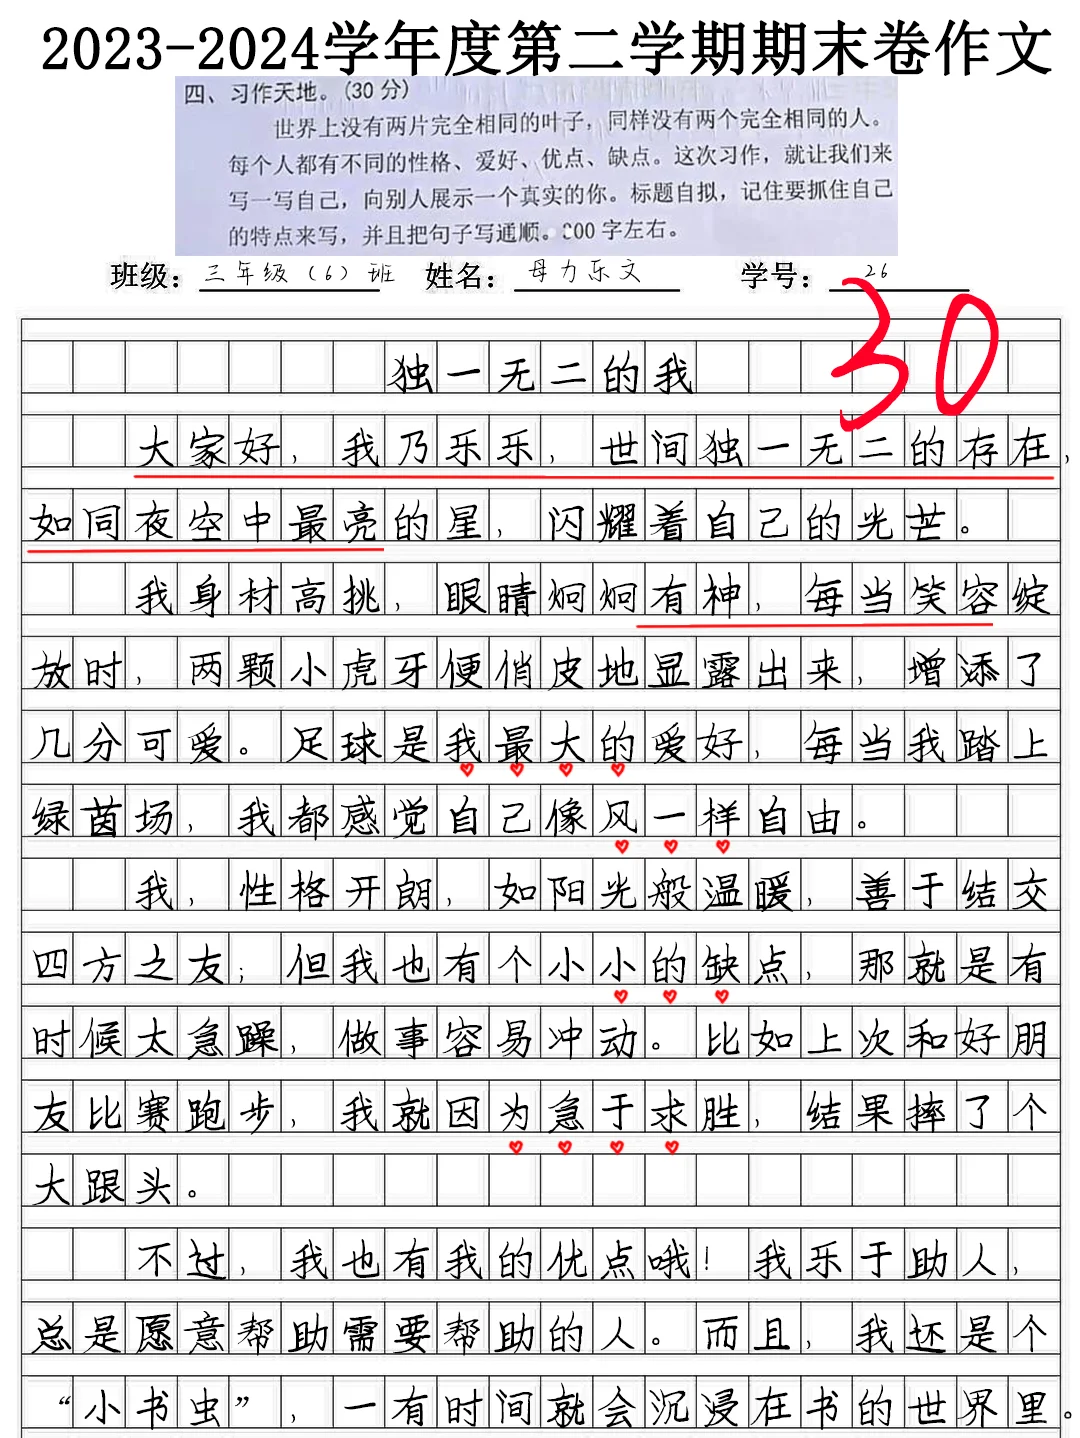 2023-2024学年度第二学期期末卷作文
四、习作天地。(30分)
世界上没有两片完全相同的叶子，同样没有两个完全相同的人。
每个人都有不同的性格、爱好、优点、缺点。这次习作，就让我们来
写一写自己，向别人展示一个真实的你。标题自拟，记住要抓住自己
的特点来写，并且把句子写通顺。300字左右。
班级：三年级（6）班 姓名：母力乐文 学号：26
30
独一无二的我
大家好，我乃乐乐，世间独一无二的存在，
如同夜空中最亮的星，闪耀着自己的光芒。
我身材高挑，眼睛炯炯有神，每当笑容绽
放时，两颗小虎牙便俏皮地显露出来，增添了
几分可爱。足球是我最大的爱好，每当我踏上
绿茵场，我都感觉自己像风一样自由。
我，性格开朗，如阳光般温暖，善于结交
四方之友；但我也有个小小的缺点，那就是有
时候太急躁，做事容易冲动。比如上次和好朋
友比赛跑步，我就因为急于求胜，结果摔了个
大跟头。
不过，我也有我的优点哦！我乐于助人，
总是愿意帮助需要帮助的人。而且，我还是个
“小书虫”，一有时间就会沉浸在书的世界里。